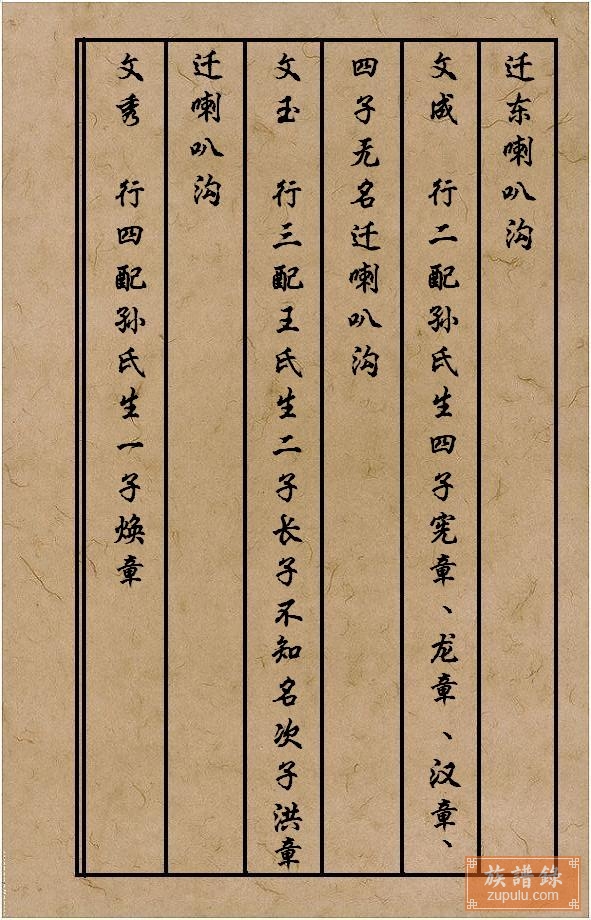 迁东喇叭沟
文成 行二配孙氏生四子宪章、龙章、汉章、
四子无名迁喇叭沟
文玉 行三配王氏生二子长子不知名次子洪章
迁喇叭沟
文秀 行四配孙氏生一子焕章
族譜錄
zupulu.com